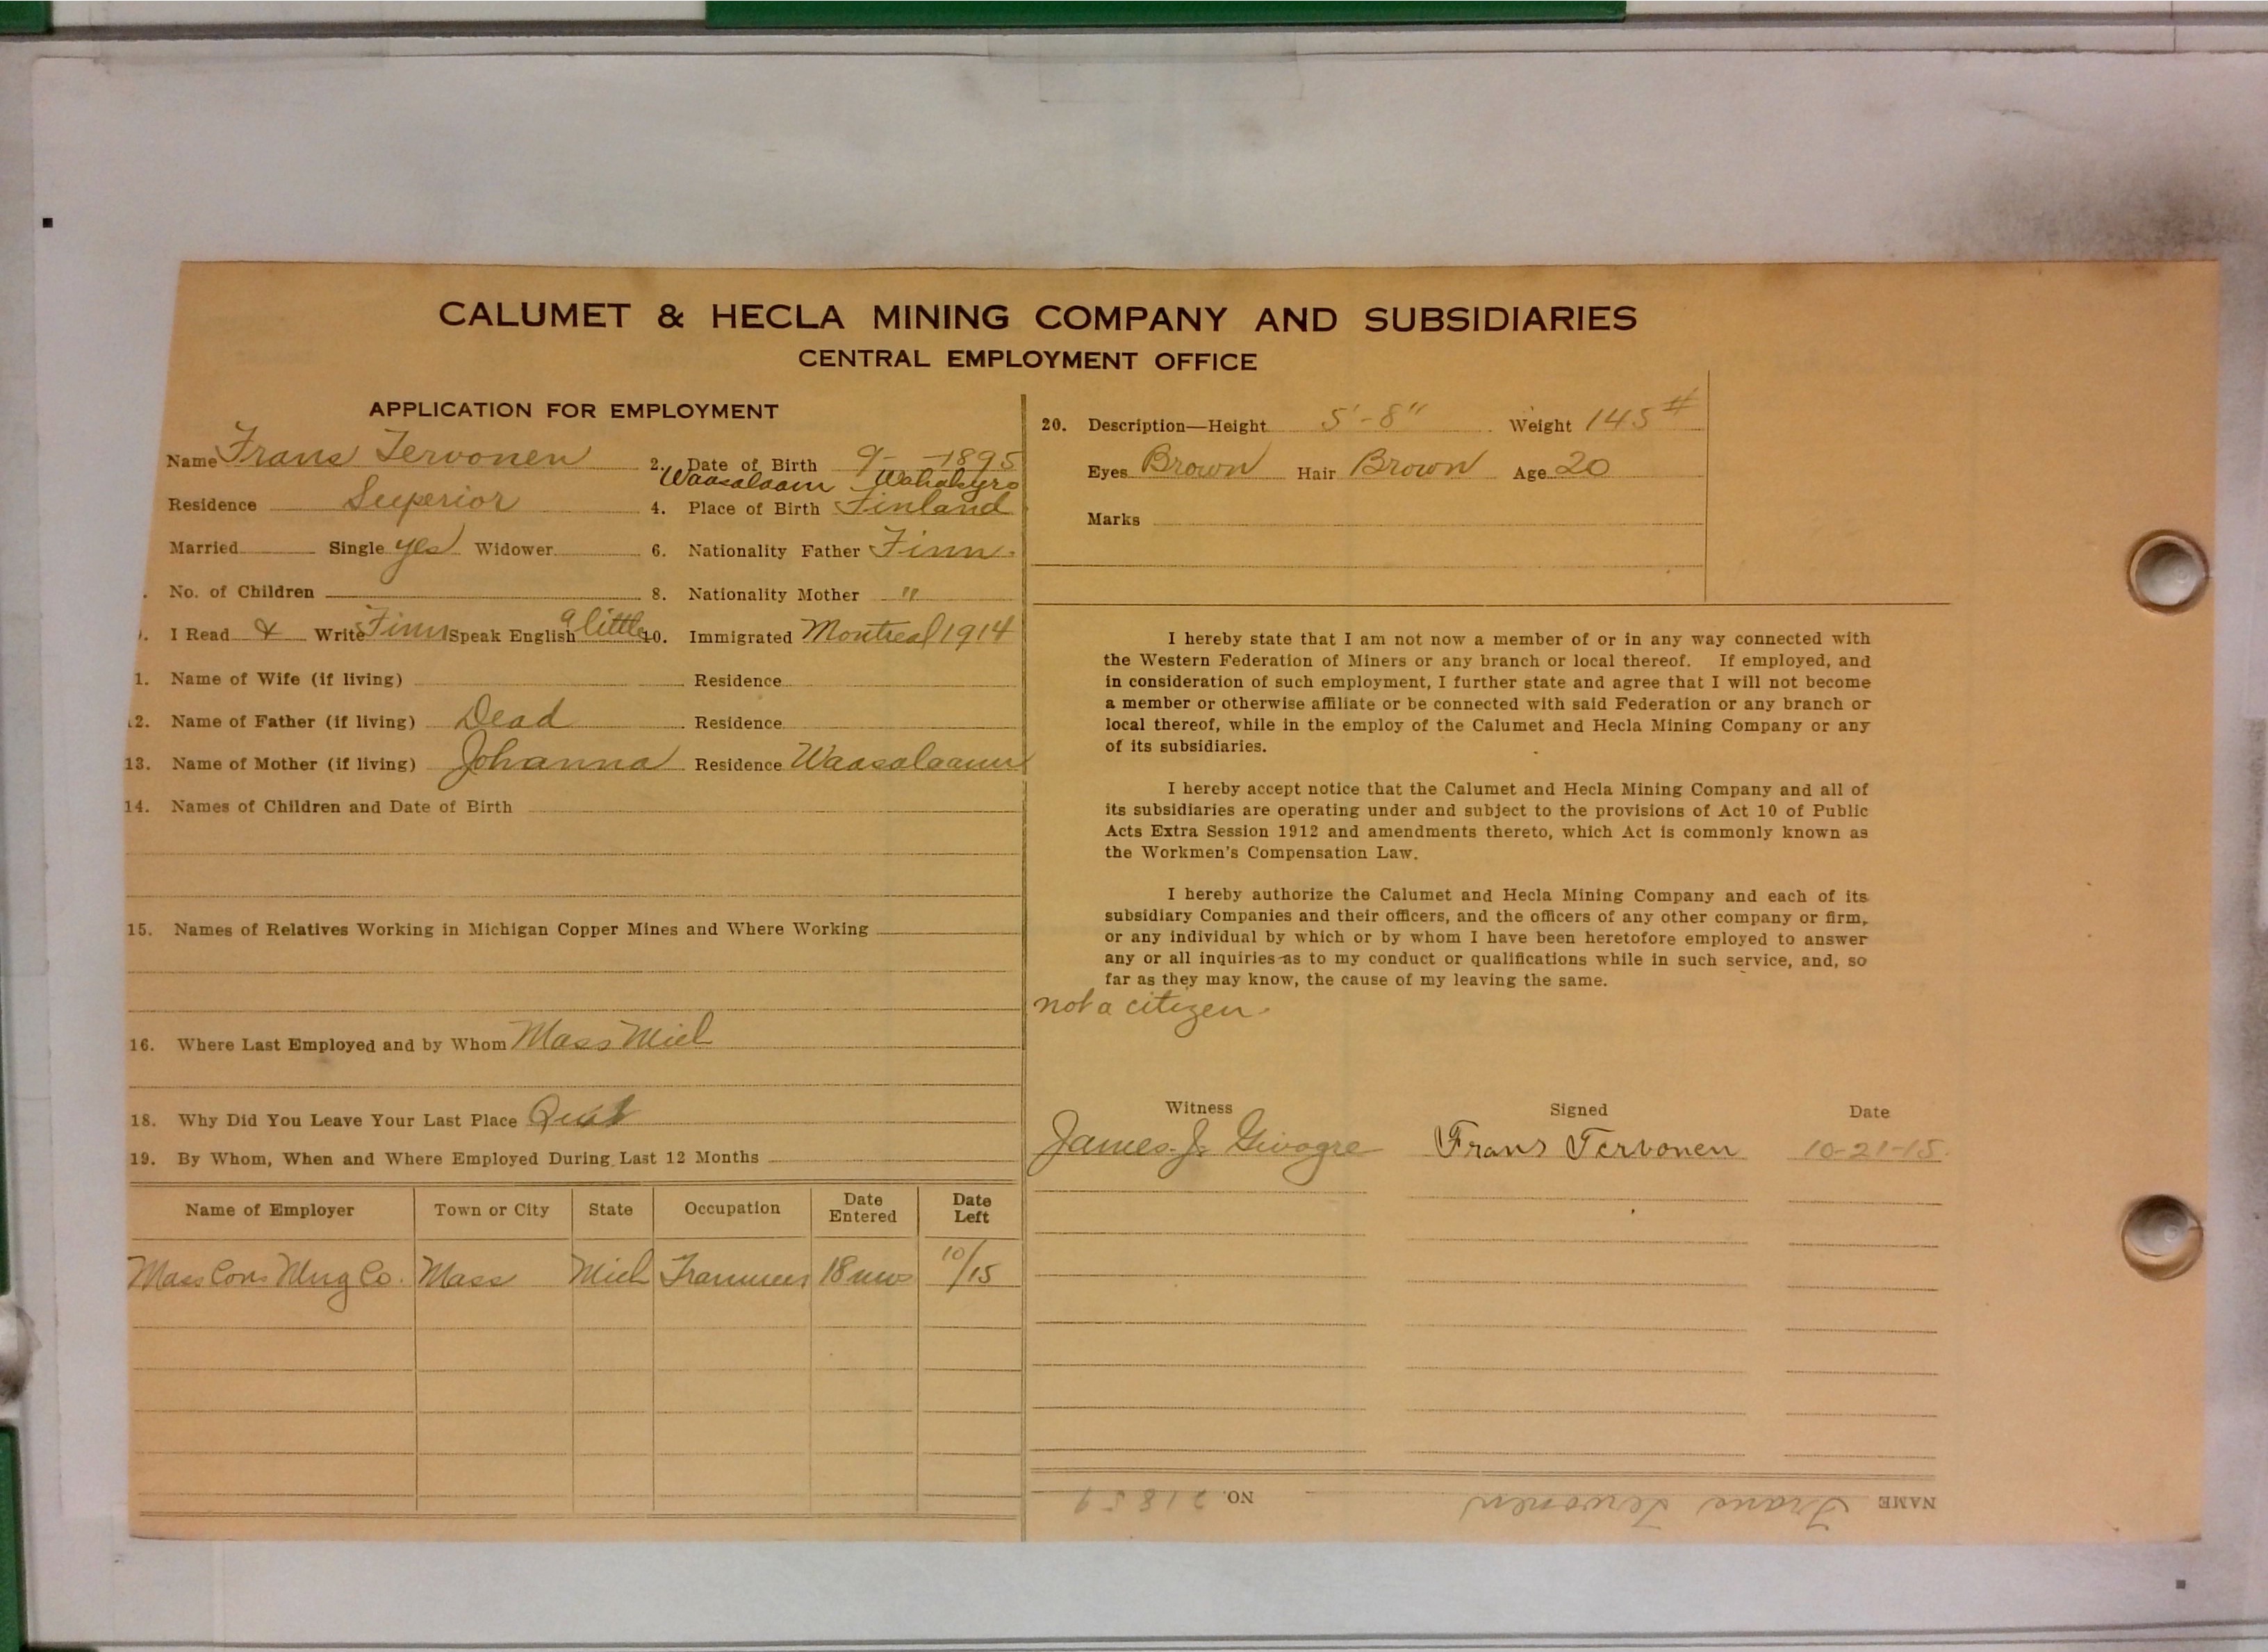 CALUMET & HECLA MINING COMPANY AND SUBSIDIARIES
CENTRAL EMPLOYMENT OFFICE
APPLICATION FOR EMPLOYMENT
Name Frans Tervonen 2. Date of Birth 9- -1895
Waasalaani Wahakyro
Residence Superior 4. Place of Birth Finland
Married Single yes Widower 6. Nationality Father Finn.
No. of Children 8. Nationality Mother "
I Read & Write Finn Speak English a little 10. Immigrated Montreal 1914
1. Name of Wife (if living) Residence
2. Name of Father (if living) Dead Residence
13. Name of Mother (if living) Johanna Residence Waasalaani
14. Names of Children and Date of Birth
15. Names of Relatives Working in Michigan Copper Mines and Where Working
16. Where Last Employed and by Whom Mass Mich
18. Why Did You Leave Your Last Place Quit
19. By Whom, When and Where Employed During Last 12 Months
Name of Employer Town or City State Occupation Date Entered Date Left
Mass Cons Mng Co. Mass Mich Trammer 18 mos 10/15
20. Description—Height 5'-8" Weight 145#
Eyes Brown Hair Brown Age 20
Marks
I hereby state that I am not now a member of or in any way connected with
the Western Federation of Miners or any branch or local thereof. If employed, and
in consideration of such employment, I further state and agree that I will not become
a member or otherwise affiliate or be connected with said Federation or any branch or
local thereof, while in the employ of the Calumet and Hecla Mining Company or any
of its subsidiaries.
I hereby accept notice that the Calumet and Hecla Mining Company and all of
its subsidiaries are operating under and subject to the provisions of Act 10 of Public
Acts Extra Session 1912 and amendments thereto, which Act is commonly known as
the Workmen's Compensation Law.
I hereby authorize the Calumet and Hecla Mining Company and each of its
subsidiary Companies and their officers, and the officers of any other company or firm,
or any individual by which or by whom I have been heretofore employed to answer
any or all inquiries as to my conduct or qualifications while in such service, and, so
far as they may know, the cause of my leaving the same.
not a citizen.
Witness Signed Date
James J. Frans Tervonen 10-21-15.
NAME Frans Tervonen NO. 21859